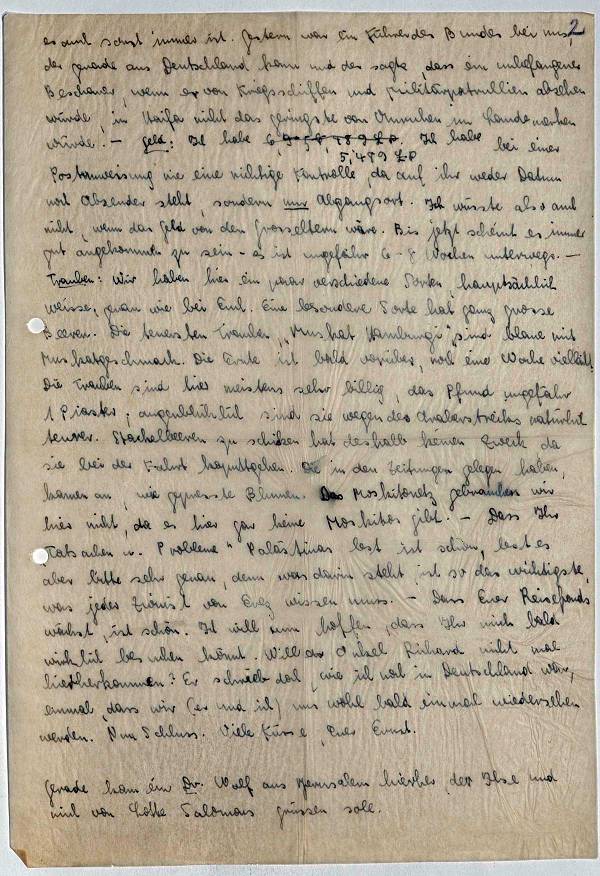 2
es auch sonst immer ist. Gestern war ein Führer des Bundes bei uns,
der gerade aus Deutschland kam und der sagte, dass ein unbefangener
Beschauer, wenn er von Kriegsschiffen und Militärpatrullien absehen
würde, in Haifa nicht das geringste von Unruhen im Lande merken
würde. – Geld: Ich habe Ich habe bei einer
5,489 £P
Postanweisung nie eine richtige Kontrolle, da auf ihr weder Datum
noch Absender steht, sondern nur Abgangsort. Ich wüsste also auch
nicht, wenn das Geld von den Grosseltern wäre. Bis jetzt scheint es immer
gut angekommen zu sein – es ist ungefähr 6-8 Wochen unterwegs. –
Trauben: Wir haben hier ein paar verschiedene Sorten, hauptsächlich
weisse, genau wie bei Euch. Eine besondere Sorte hat ganz grosse
Beeren. Die teuersten Trauben, "Muskat Hamburgi" sind blaue mit
Muskatgeschmack. Die Ernte ist bald vorüber, noch eine Woche vielleicht.
Die Trauben sind hier meistens sehr billig, das Pfund ungefähr
1 Piaster; augenblicklich sind sie wegen des Araberstreiks natürlich
teurer. Stachelbeeren zu schicken hat deshalb keinen Zweck da
sie bei der Fahrt kaputtgehen. Die in den Zeitungen gelegen haben,
kamen an, wie gepresste Blumen. Das Moskitonetz gebrauchen wir
hier nicht, da es hier gar keine Moskitos gibt. – Dass Ihr
"Tatsachen u. Probleme" Palästinas lest ist schön, lest es
aber bitte sehr genau, denn was darin steht, ist so das wichtigste,
was jeder Zionist von Erez wissen muss. – Dass Euer Reisefonds
wächst, ist schön. Ich will nun hoffen, dass Ihr mich bald
wirklich besuchen könnt. Will der Onkel Richard nicht mal
hierherkommen? Er schrieb doch, wie ich noch in Deutschland war,
einmal, dass wir (er und ich) uns wohl bald einmal wiedersehen
werden. Nun Schluss. Viele Küsse, Euer Ernst.
Gerade kam ein Dr. Wolf aus Jerusalem hierher, der Ilse und
mich von Lotte Salomons grüssen solle.